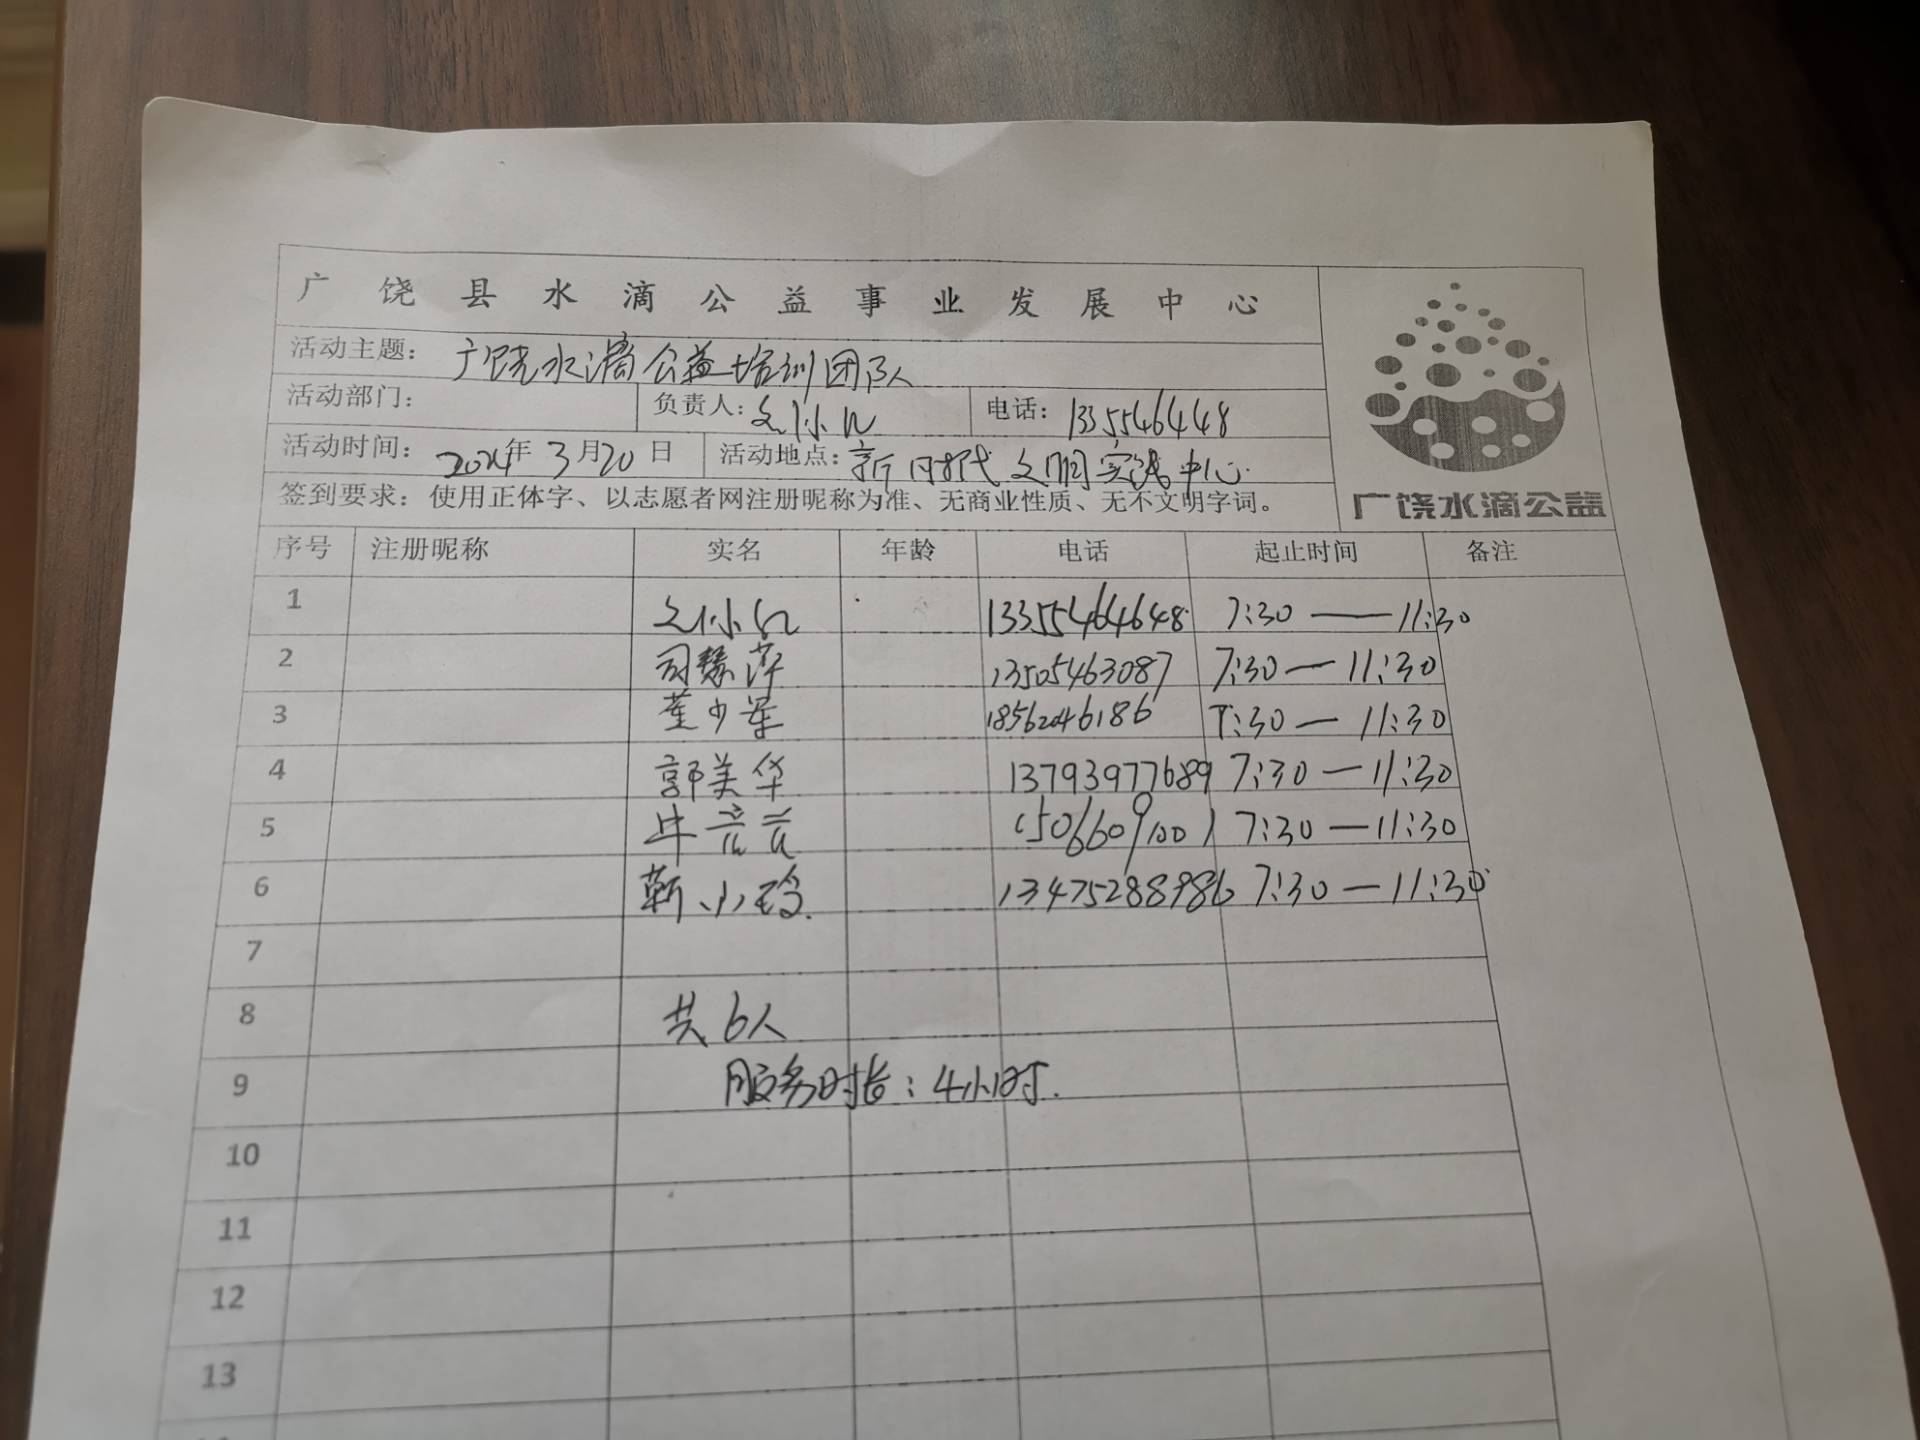 广饶县水滴公益事业发展中心
活动主题：广饶水滴公益培训团队
活动部门： 负责人： 电话：1335546448
活动时间：2024年3月20日 活动地点：新时代文明实践中心
签到要求：使用正体字、以志愿者网注册昵称为准、无商业性质、无不文明字词。
广饶水滴公益
序号 注册昵称 实名 年龄 电话 起止时间 备注
1 13355464648 7:30——11:30
2 司慧萍 13505463087 7:30—11:30
3 董少军 18562046186 7:30—11:30
4 郭美华 13793977689 7:30—11:30
5 牛 15066091001 7:30—11:30
6 靳小玲 13475288986 7:30—11:30
7
8 共6人
9 服务时长：4小时.
10
11
12
13